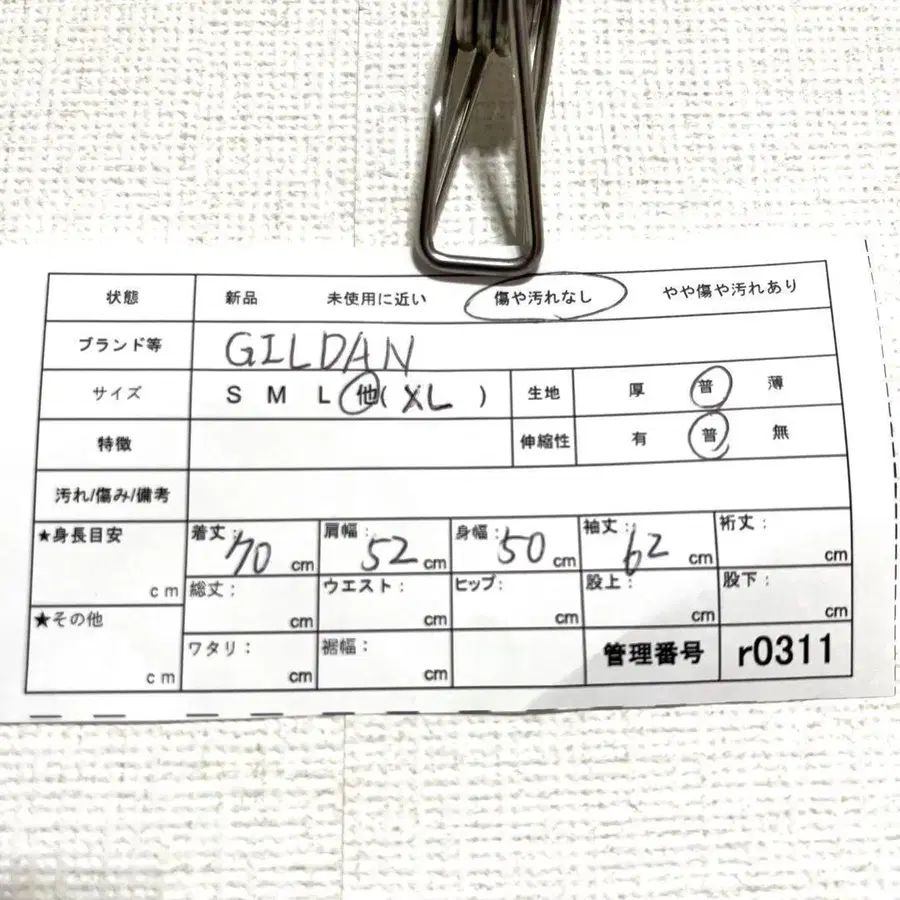 状態 新品 未使用に近い 傷や汚れなし やや傷や汚れあり
ブランド等 GILDAN
サイズ S M L 他( XL ) 生地 厚 普 薄
特徴 伸縮性 有 普 無
汚れ/傷み/備考
★身長目安 cm 着丈: 70 cm 肩幅: 52 cm 身幅: 50 cm 袖丈: 62 cm 裄丈: cm
総丈: cm ウエスト: cm ヒップ: cm 股上: cm 股下: cm
★その他 cm ワタリ: cm 裾幅: cm 管理番号 r0311